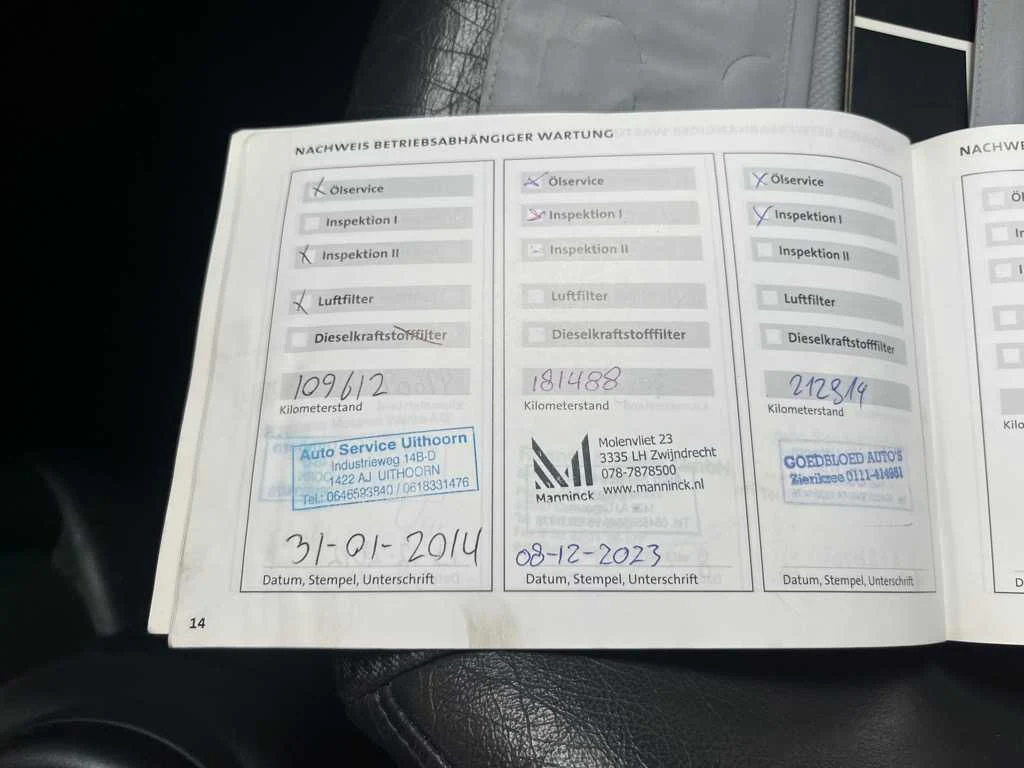 NACHWEIS BETRIEBSABHÄNGIGER WARTUNG
Ölservice
Inspektion I
Inspektion II
Luftfilter
Dieselkraftstofffilter
109612
Kilometerstand
Auto Service Uithoorn
Industrieweg 14B-D
1422 AJ UITHOORN
Tel.: 0646593840 / 0618331476
31-01-2014
Datum, Stempel, Unterschrift
Ölservice
Inspektion I
Inspektion II
Luftfilter
Dieselkraftstofffilter
181488
Kilometerstand
Manninck
Molenvliet 23
3335 LH Zwijndrecht
078-7878500
www.manninck.nl
08-12-2023
Datum, Stempel, Unterschrift
Ölservice
Inspektion I
Inspektion II
Luftfilter
Dieselkraftstofffilter
212814
Kilometerstand
GOEDBLOED AUTO'S
Zierikzee 0111-414951
Datum, Stempel, Unterschrift
14